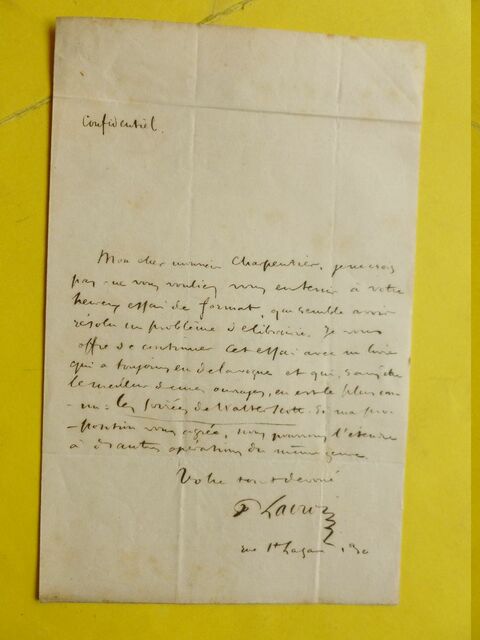 Confidentiel.
Mon cher monsieur Charpentier, je ne crois
pas que vous vouliez vous en tenir à votre
heureux essai de format, qui semble avoir
résolu un problème de librairie. Je vous
offre de continuer cet essai avec un livre
qui a toujours eu de la vogue et qui, sans être
le meilleur de mes ouvrages, en est le plus con-
nu: les soirées de Walter Scott. Si ma pro-
-position vous agrée, nous pourrons l'étendre
à d'autres opérations du même genre.
Votre tout dévoué
P Lacroix
rue St Lazare